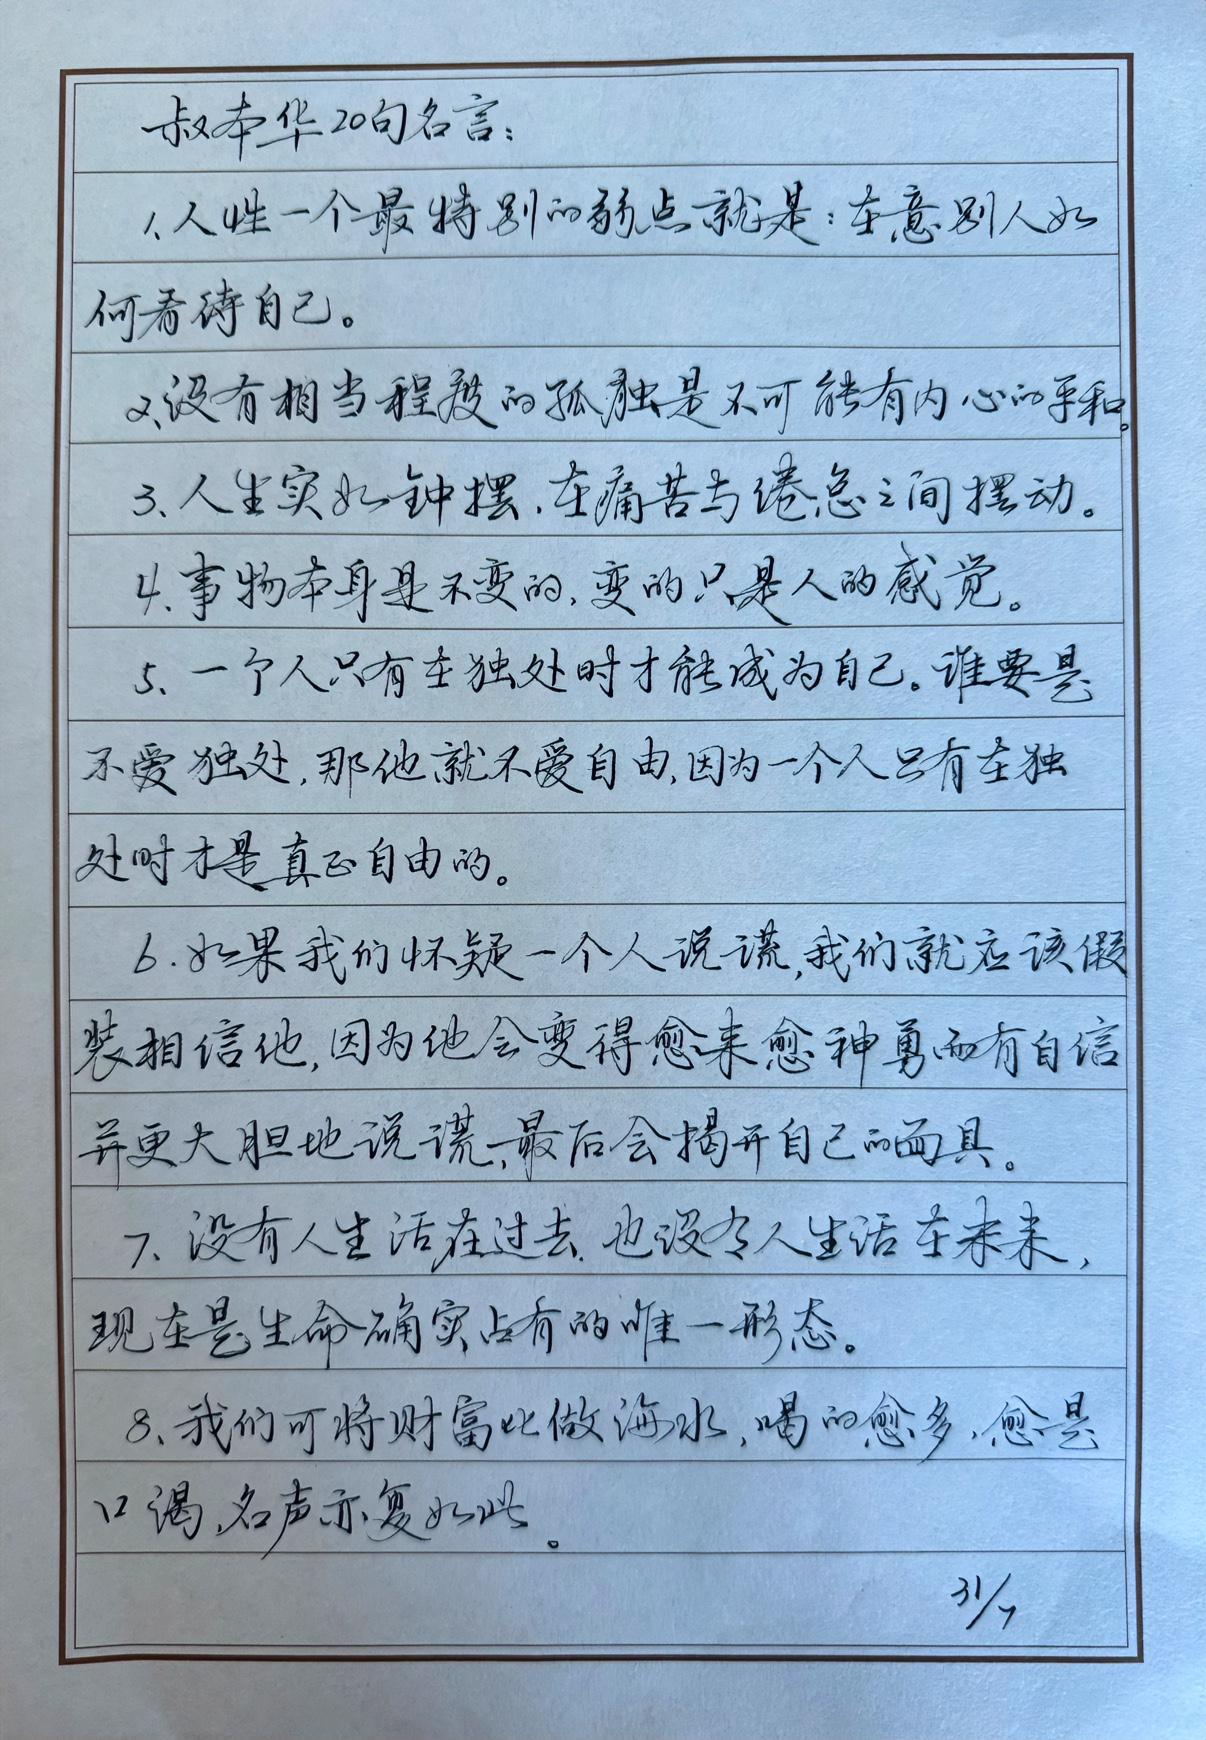 叔本华20句名言：
1、人性一个最特别的弱点就是：在意别人如
何看待自己。
2、没有相当程度的孤独是不可能有内心的平和。
3、人生实如钟摆，在痛苦与倦怠之间摆动。
4、事物本身是不变的，变的只是人的感觉。
5、一个人只有在独处时才能成为自己。谁要是
不爱独处，那他就不爱自由，因为一个人只有在独
处时才是真正自由的。
6.如果我们怀疑一个人说谎，我们就应该假
装相信他，因为他会变得愈来愈神勇而有自信
并更大胆地说谎，最后会揭开自己的面具。
7、没有人生活在过去，也没有人生活在未来，
现在是生命确实占有的唯一形态。
8、我们可将财富比做海水，喝的愈多，愈是
口渴，名声亦复如此。
31/7